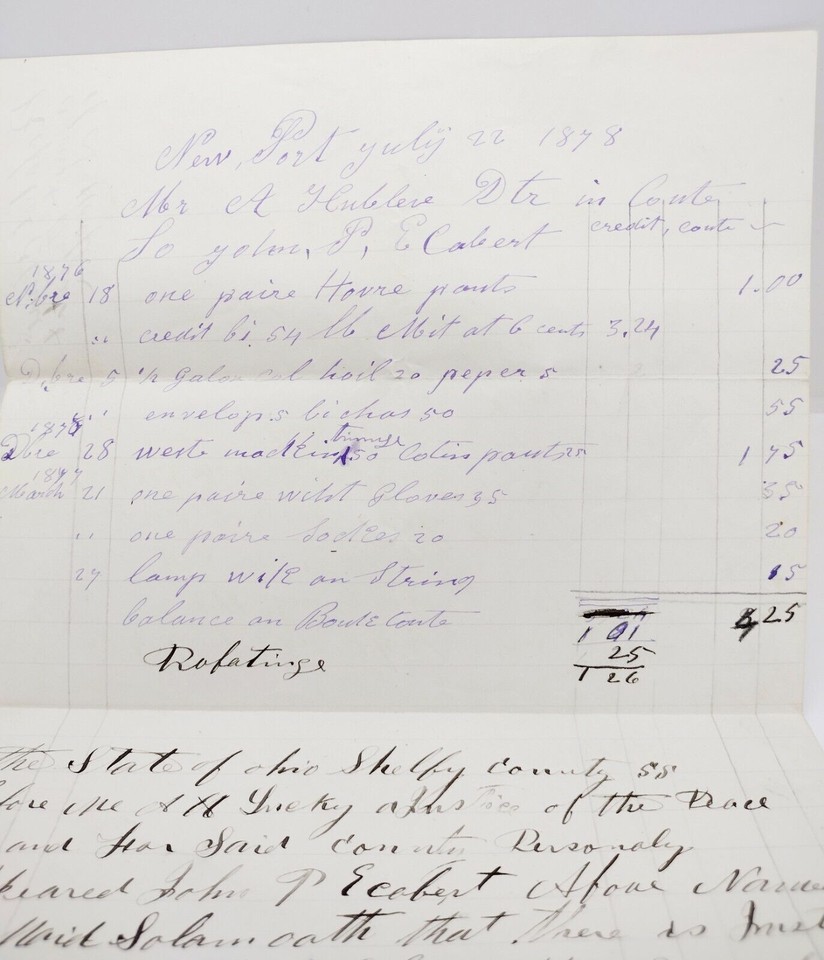 New Port july 22 1878
Mr A Hublere Dtr in Conte
To john, P, E Cabert credit, conte
1876
Nbre 18 one paire Hovre pants 1.00
" credit bi 54 lb Mit at 6 cents 3.24
Dbre 5 1/2 Galon col hoil 20 peper 5 25
" envelops 5 bichos 50 55
1876
Dbre 28 weste madking 150 Cotin pants 25 1 75
trimge
1877
March 21 one paire wiht Gloves 35 35
" one paire Sockes 20 20
27 lamp wik an String 15
balance an Bouk conte 1 01 4 25
Rofatinge 25
1 26
the State of ohio Shelby county ss
fore me A justice of the Peace
and for Said county Personaly
peared John P Ecabert Above Name
Maid Solam oath that there is Just